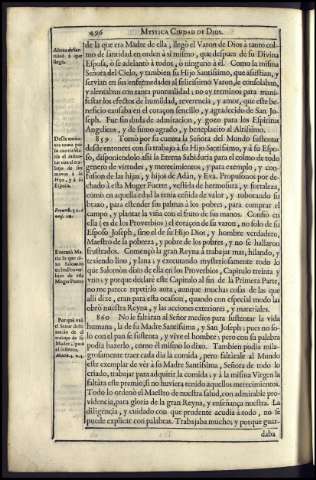 496
MYSTICA CIUDAD DE DIOS.
de la que era Madre de ella, llegò el Varon de Dios à tanto col-
mo de santidad en orden à sì mismo, que despues de su Divina
Esposa, ò se adelantò à todos, ò ninguno à èl. Como la misma
Señora del Cielo, y tambien su Hijo Santissimo, que assistian, y
servian en sus enfermedades al felicissimo Varon, le consolaban,
y alentaban con tanta puntualidad; no ay terminos para mani-
festar los efectos de humildad, reverencia, y amor, que este be-
neficio causaba en el coraçon sencillo, y agradecido de San Jo-
seph. Fue sin duda de admiracion, y gozo para los Espiritus
Angelicos, y de sumo agrado, y beneplacito al Altissimo.
859 Tomò por su cuenta la Señora del Mundo sustentar
desde entonces con su trabajo à su Hijo Santissimo, y à su Espo-
so, disponiendolo assi la Eterna Sabiduria para el colmo de todo
genero de virtudes, y merecimientos, y para exemplo, y con-
fusion de las hijas, y hijos de Adàn, y Eva. Propusonos por de-
chado à esta Muger Fuerte, vestida de hermosura, y fortaleza,
como en aquella edad la tenia ceñida de valor, y roborando su
braço, para estender sus palmas à los pobres, para comprar el
campo, y plantar la viña con el fruto de sus manos. Confiò en
ella (es de los Proverbios) el coraçon de su varon, no solo de su
Esposo Joseph, sino el de su Hijo Dios, y hombre verdadero,
Maestro de la pobreza, y pobre de los pobres, y no se hallaron
frustrados. Començò la gran Reyna à trabajar mas, hilando, y
texiendo lino, y lana, y executando mysteriosamente todo lo
que Salomòn dixo de ella en los Proverbios, Capitulo treinta y
vno; y porque declarè este Capitulo al fin de la Primera Parte,
no me parece repetirlo aora, aunque muchas cosas de las que
alli dixe, eran para esta ocasion, quando con especial modo las
obrò nuestra Reyna, y las acciones exteriores, y materiales.
860 No le faltàran al Señor medios para sustentar la vida
humana, la de su Madre Santissima, y San Joseph; pues no so-
lo con el pan se sustenta, y vive el hombre; pero con su palabra
podia hazerlo, como èl mismo lo dixo. Tambien podia mila-
grosamente traer cada dia la comida; pero faltàrale al Mundo
este exemplar de vèr à su Madre Santissima, Señora de todo lo
criado, trabajar para adquirir la comida; y à la misma Virgen la
faltàra este premio, si no huviera tenido aquellos merecimientos.
Todo lo ordenò el Maestro de nuestra salud, con admirable pro-
videncia, para gloria de la gran Reyna, y enseñança nuestra. La
diligencia, y cuidado con que prudente acudia à todo, no se
puede explicar con palabras. Trabajaba mucho; y porque guar-
daba